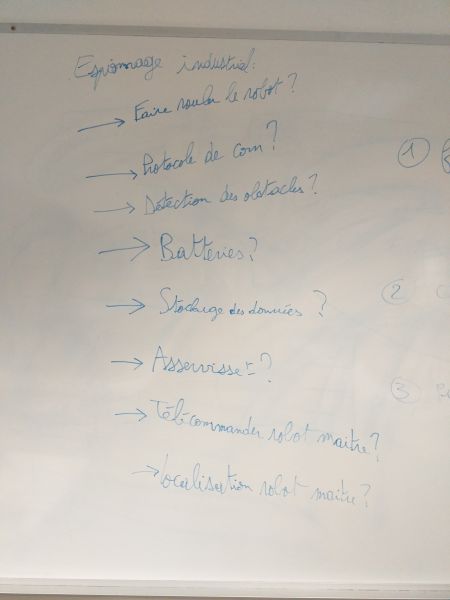 Espionnage industriel:
→ Faire rouler le robot?
→ Protocole de com?
→ Détection des obstacles?
→ Batteries?
→ Stockage des données?
→ Asservisset?
→ Télécommander robot maitre?
→ Localisation robot maitre?
1
2
3